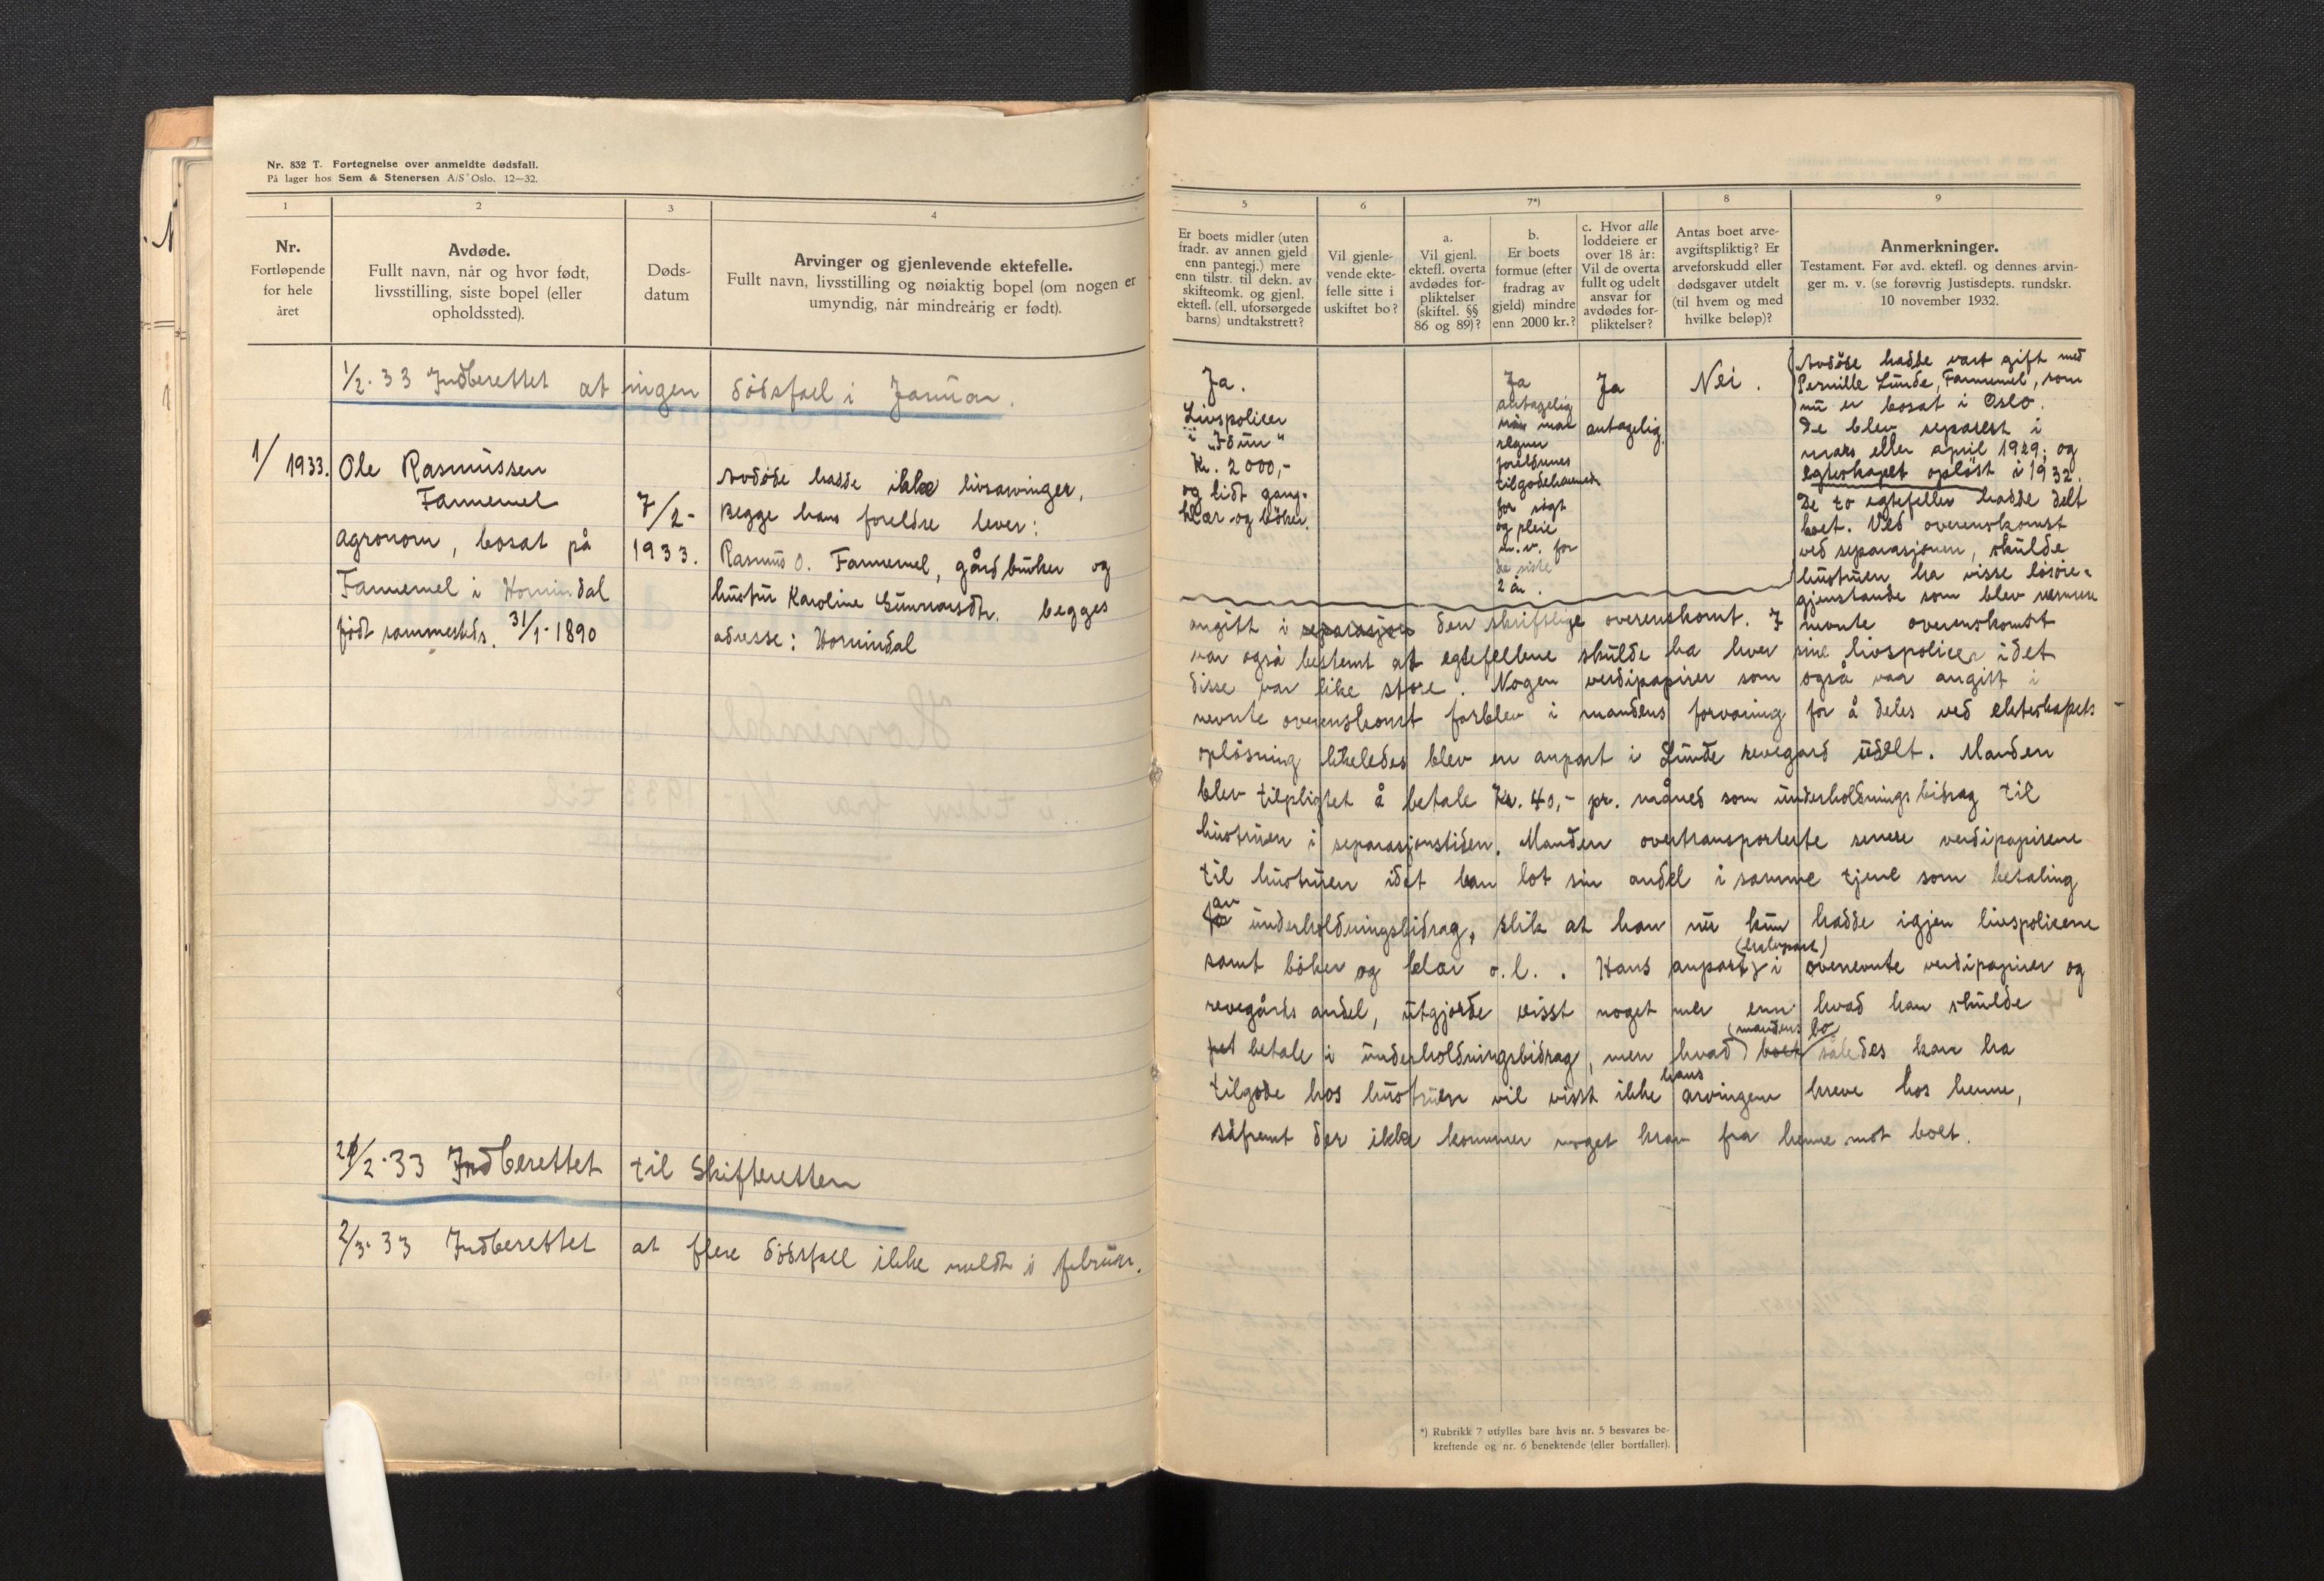 Nr. 832 T. Fortegnelse over anmeldte dødsfall.
På lager hos Sem & Stenersen A/S Oslo. 12—32.
1
2
3
4
Nr.
Fortløpende
for hele
året
Avdøde.
Fullt navn, når og hvor født,
livsstilling, siste bopel (eller
opholdssted).
Døds-
datum
Arvinger og gjenlevende ektefelle.
Fullt navn, livsstilling og nøiaktig bopel (om nogen er
umyndig, når mindreårig er født).
1/2.33 Indberettet at ingen dødsfall i Januar.
1/1933.
Ole Rasmussen
Fannemel
agronom, bosat på
Fannemel i Hornindal
født sammesteds. 31/1-1890
7/2-
1933.
Avdøde hadde ikke livsarvinger.
Begge hans foreldre lever:
Rasmus O. Fannemel, gårdbruker og
hustru Karoline Gunnarsdtr. begges
adresse: Hornindal
21/2.33 Indberettet til Skifteretten
2/3.33 Indberettet at flere dødsfall ikke meldt i februar.
5
6
7*)
8
9
Er boets midler (uten
fradr. av annen gjeld
enn pantegj.) mere
enn tilstr. til dekn. av
skifteomk. og gjenl.
ektefl. (ell. uforsørgede
barns) undtakstrett?
Vil gjenle-
vende ekte-
felle sitte i
uskiftet bo?
a.
Vil gjenl.
ektefl. overta
avdødes for-
pliktelser
(skiftel. §§
86 og 89)?
b.
Er boets
formue (efter
fradrag av
gjeld) mindre
enn 2000 kr.?
c. Hvor alle
loddeiere er
over 18 år:
Vil de overta
fullt og udelt
ansvar for
avdødes for-
pliktelser?
Antas boet arve-
avgiftspliktig? Er
arveforskudd eller
dødsgaver utdelt
(til hvem og med
hvilke beløp)?
Anmerkninger.
Testament. Før avd. ektefl. og dennes arvin-
ger m. v. (se forøvrig Justisdepts. rundskr.
10 november 1932.
Ja.
Livspolicer
i "Idun"
Kr. 2000,-
og lidt gang-
klær og bøker.
Ja
antagelig
når man
regner
foreldrenes
tilgodehavende
for røgt
og pleie
m.v. for
de siste
2 år.
Ja
antagelig.
Nei.
Avdøde hadde vært gift med
Pernille Lunde, Fannemel, som
nu er bosat i Oslo.
De blev separert i
mars eller april 1929; og
egteskapet opløst i 1932.
De to egtefeller hadde delt
boet. Ved overenskomst
ved separasjonen, skulde
hustruen ha visse løsøre-
gjenstande som blev nærmere
angitt i separasjon den skriftlige overenskomst. I nevnte overenskomst
var også bestemt at egtefellene skulde ha hver sine livspolicer idet
disse var like store. Nogen verdipapirer som også var angitt i
nevnte overenskomst forblev i mandens forvaring for å deles ved ekteskapets
opløsning likeledes blev en anpart i Lunde revegard udelt. Manden
blev tilpligtet å betale Kr. 40,- pr. måned som underholdningsbidrag til
hustruen i separasjonstiden. Manden overtransporterte senere verdipapirene
til hustruen idet han lot sin andel i samme tjene som betaling
av
for underholdningsbidrag, slik at han nu kun hadde igjen livspolicene
(halvpart)
samt bøker og klær o.l.. Hans anpart i ovenevnte verdipapirer og
revegårds andel, utgjorde visst noget mer enn hvad han skulde
(mandens bo
betale i underholdningsbidrag, men hvad boet således kan ha
hans
tilgode hos hustruen vil visst ikke arvingene kreve hos henne,
såfremt der ikke kommer noget krav fra henne mot boet.
*) Rubrikk 7 utfylles bare hvis nr. 5 besvares be-
kreftende og nr. 6 benektende (eller bortfaller).